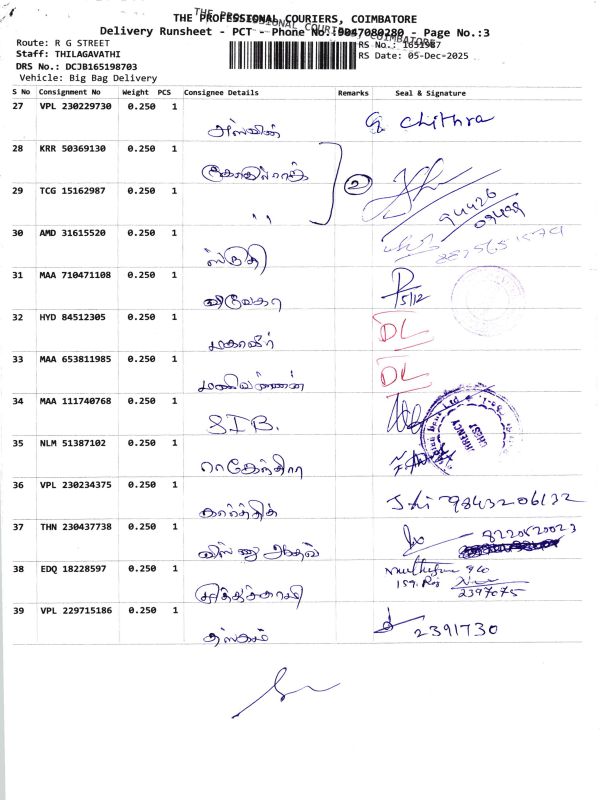 THE PROFESSIONAL COURIERS, COIMBATORE
Delivery Runsheet - PCT - Phone No.:9047080280 - Page No.:3
Route: R G STREET
RS No.: 1651987
Staff: THILAGAVATHI
RS Date: 05-Dec-2025
DRS No.: DCJB165198703
Vehicle: Big Bag Delivery
S No Consignment No Weight PCS Consignee Details Remarks Seal & Signature
27 VPL 230229730 0.250 1
அஸ்வின் G Chithra
28 KRR 50369130 0.250 1
கோகுல்ராஜ் 2
29 TCG 15162987 0.250 1
" 94426
09499
30 AMD 31615520 0.250 1
ஸ்ருதி
31 MAA 710471108 0.250 1
விவேகா 5/12
32 HYD 84512305 0.250 1
மகாவீர் DL
33 MAA 653811985 0.250 1
மணிவண்ணன் DL
34 MAA 111740768 0.250 1
SIB.
35 NLM 51387102 0.250 1
ராகேந்திரா
36 VPL 230234375 0.250 1
கார்த்திக் 9843206132
37 THN 230437738 0.250 1
விஸ்ணு 8220520023
38 EDQ 18228597 0.250 1
159.
2397075
39 VPL 229715186 0.250 1
2391730